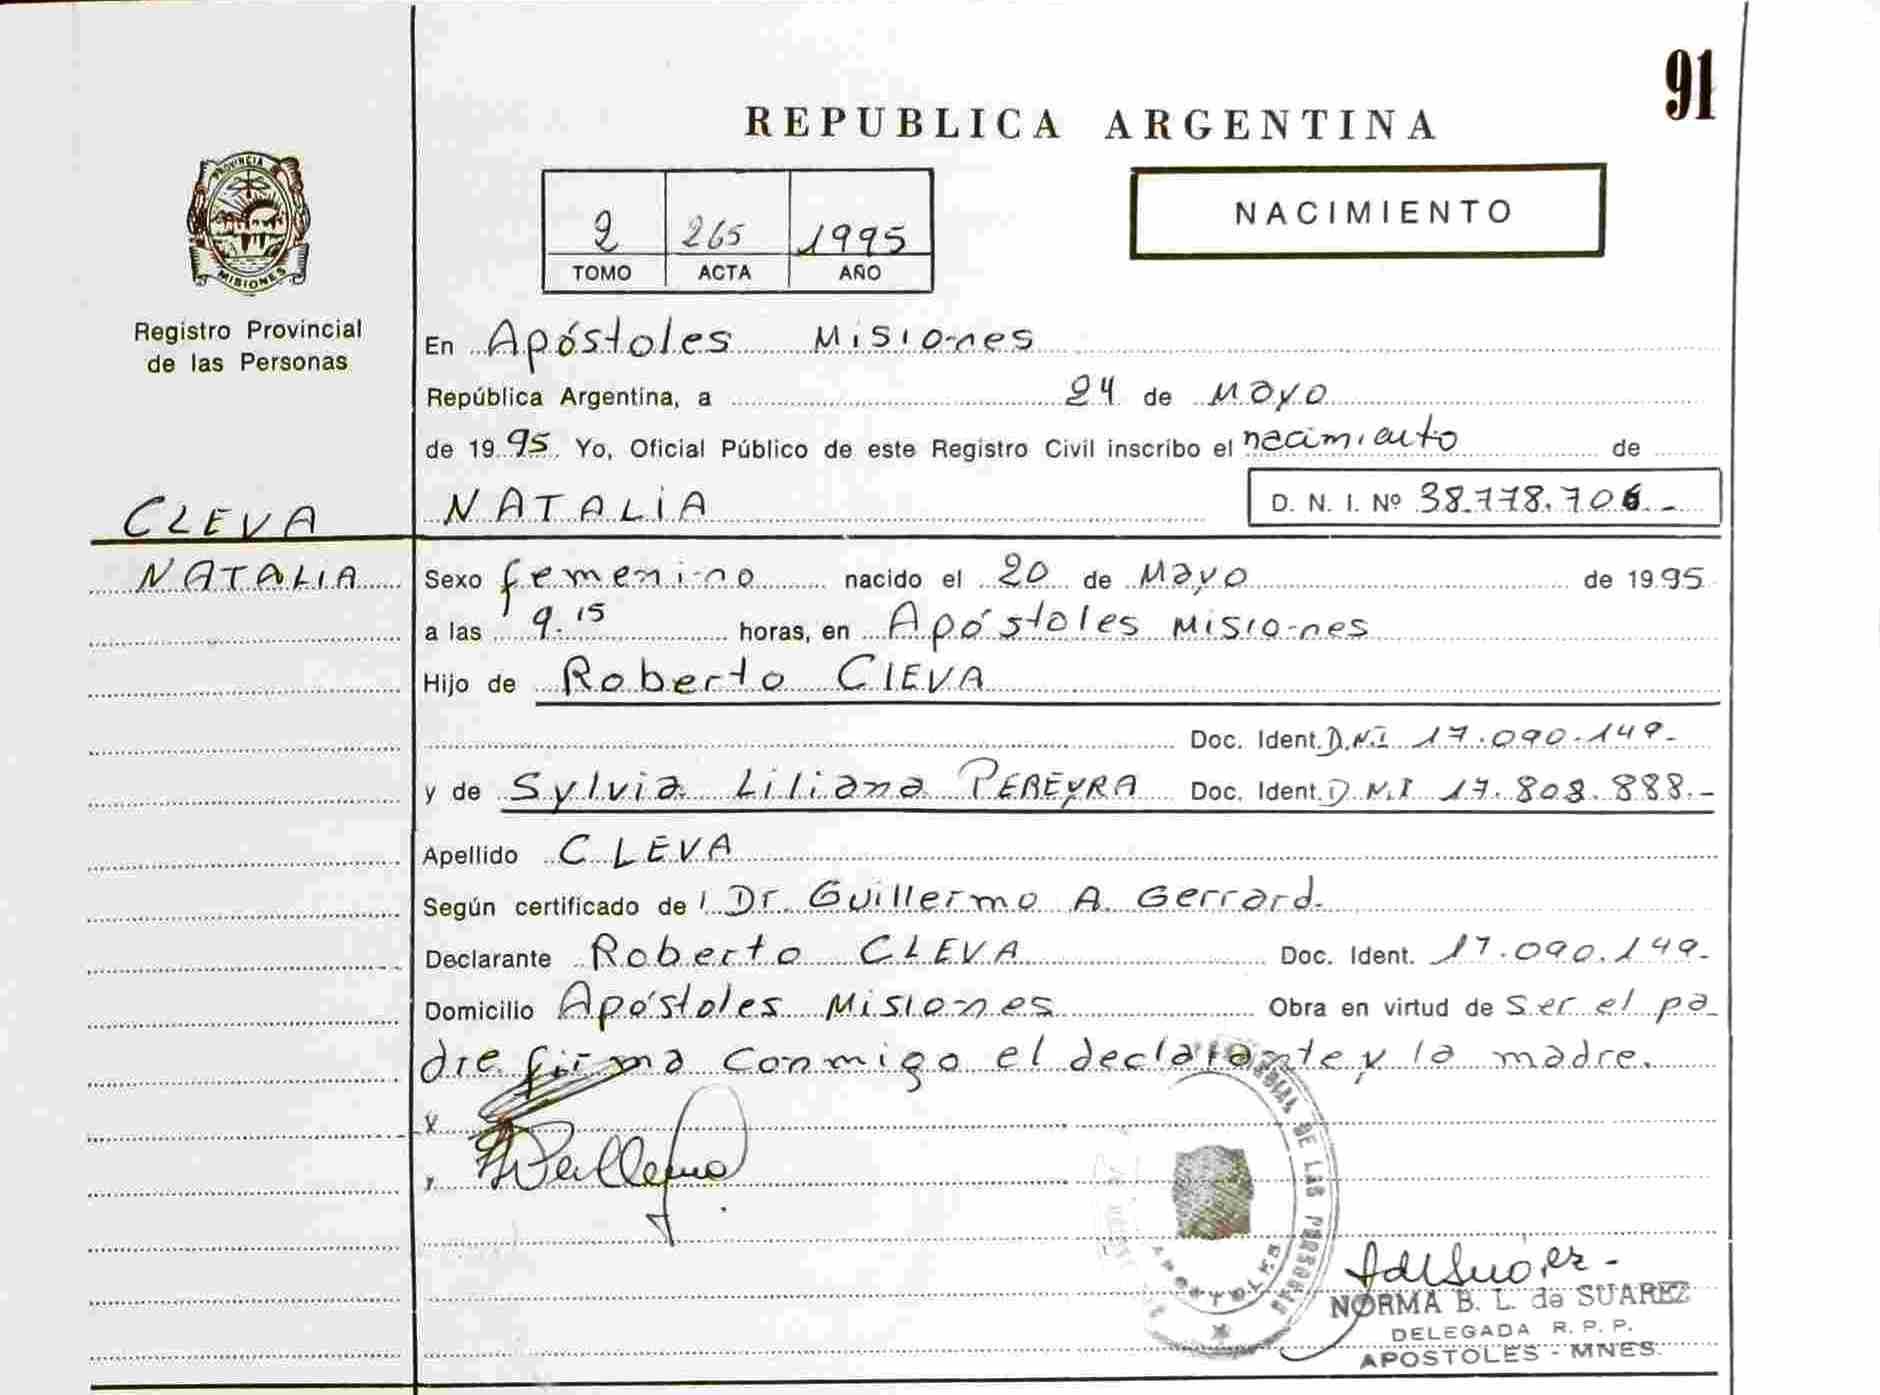 91
REPUBLICA ARGENTINA
PROVINCIA
MISIONES
Registro Provincial
de las Personas
2 265 1995
TOMO ACTA AÑO
NACIMIENTO
En Apóstoles Misiones
República Argentina, a 24 de Mayo
de 1995 Yo, Oficial Público de este Registro Civil inscribo el nacimiento de
CLEVA NATALIA D. N. I. Nº 38.778.706.-
NATALIA Sexo femenino nacido el 20 de Mayo de 1995
a las 9.15 horas, en Apóstoles Misiones
Hijo de Roberto ClEVA
Doc. Ident. D.N.I 17.090.149-
y de Sylvia Liliana PEREYRA Doc. Ident. D.N.I 17.808.888.-
Apellido CLEVA
Según certificado de l Dr. Guillermo A. Gerrard.
Declarante Roberto CLEVA Doc. Ident. 17.090.149-
Domicilio Apóstoles Misiones Obra en virtud de Ser el pa
dre firma conmigo el declarante y la madre.
x
DE LAS PERSONAS
APOSTOLES
NORMA B. L. de SUAREZ
DELEGADA R. P. P.
APOSTOLES - MNES.